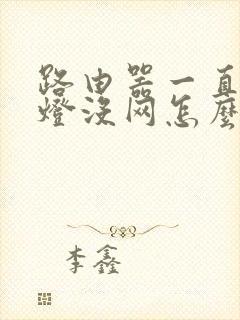 路由器一直
燈沒网怎麼
李鑫